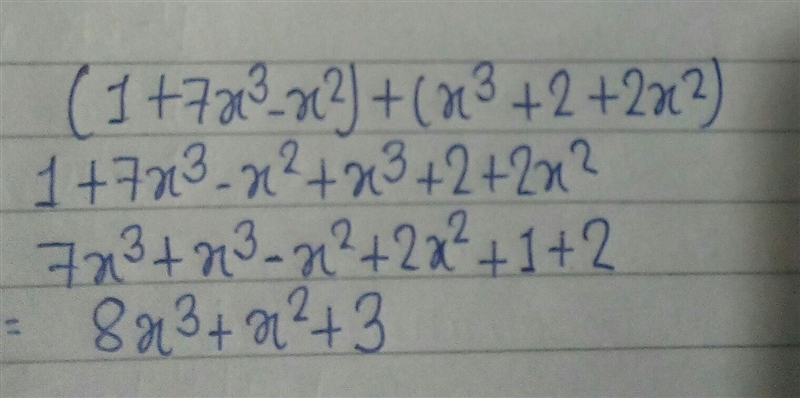 (1+7x³-x²)+(x³+2+2x²)
1+7x³-x²+x³+2+2x²
7x³+x³-x²+2x²+1+2
= 8x³+x²+3